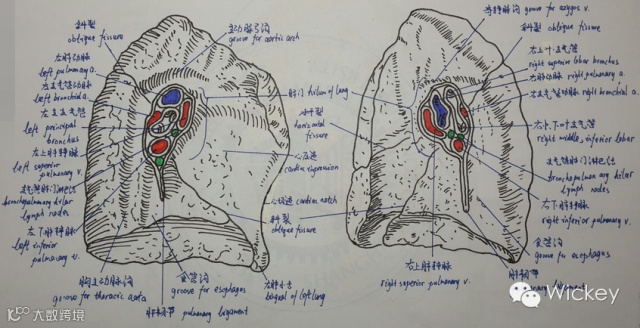 斜裂
oblique fissure
左肺动脉
left pulmonary a.
左支气管动脉
left bronchial a.
左主支气管
left principal
bronchus
左上肺静脉
left superior
pulmonary v.
支气管肺门淋巴结
bronchopulmonary hilar
lymph nodes
左下肺静脉
left inferior
pulmonary v.
胸主动脉沟
groove for thoracic aorta
主动脉弓沟
groove for aortic arch
肺门 hilum of lung
水平裂
horizontal
fissure
心压迹
cardiac impression
心切迹 cardiac notch
斜裂
oblique fissure
食管沟
groove for esophagus
左肺小舌
lingual of left lung
肺韧带 pulmonary ligament
奇静脉沟 groove for azygos v.
斜裂
oblique fissure
右上叶支气管
right superior lobar bronchus
右肺动脉 right pulmonary a.
右支气管动脉 right bronchial a.
右中、下叶支气管
right middle, inferior lobar
支气管肺门淋巴结
bronchopulmonary hilar
lymph nodes
右下肺静脉
right inferior pulmonary v.
食管沟
groove for esophagus
右上肺静脉
right superior pulmonary v.
肺韧带
ligament
Wickey
大数跨境